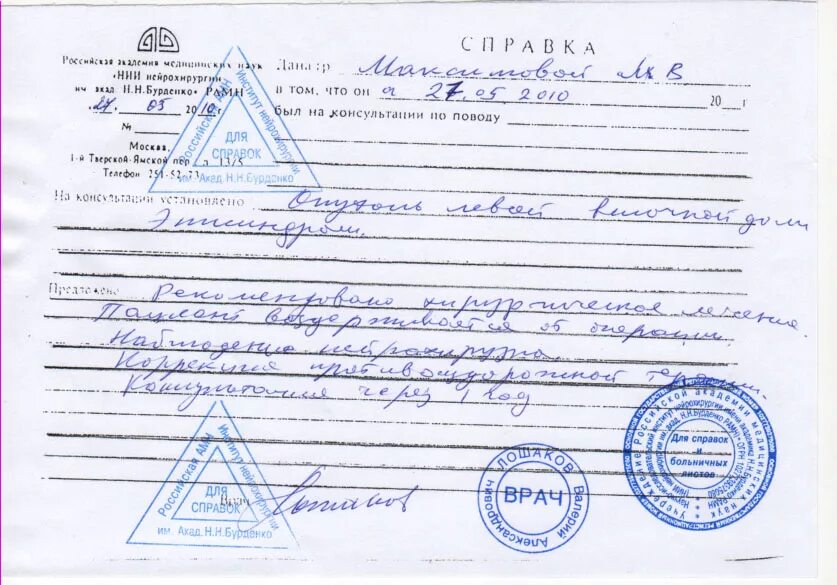 СПРАВКА
Российская академия медицинских наук
«НИИ нейрохирургии
им акад. Н.Н.Бурденко» РАМН
"27" 05 2010 г.
№
Москва,
1-й Тверской-Ямской пер. д. 13/5
Телефон 251-52-73
Дана гр Максимовой М В
в том, что он а 27.05 2010 20 г
был на консультации по поводу
На консультации установлено Опухоль левой височной доли
Эписиндром.
Предложено Рекомендовано хирургическое лечение.
Пациент воздерживается от операции.
Наблюдение нейрохирурга.
Коррекция противосудорожной терапии.
Консультация через 1 год
Врач Лошаков
Российская АМН
Институт нейрохирургии
им. Акад. Н.Н.Бурденко
ДЛЯ
СПРАВОК
Российская АМН
Институт нейрохирургии
им. Акад. Н.Н.Бурденко
ДЛЯ
СПРАВОК
ЛОШАКОВ Валерий Александрович
ВРАЧ
Учреждение Российской академии медицинских наук
Для справок
и
больничных
листов